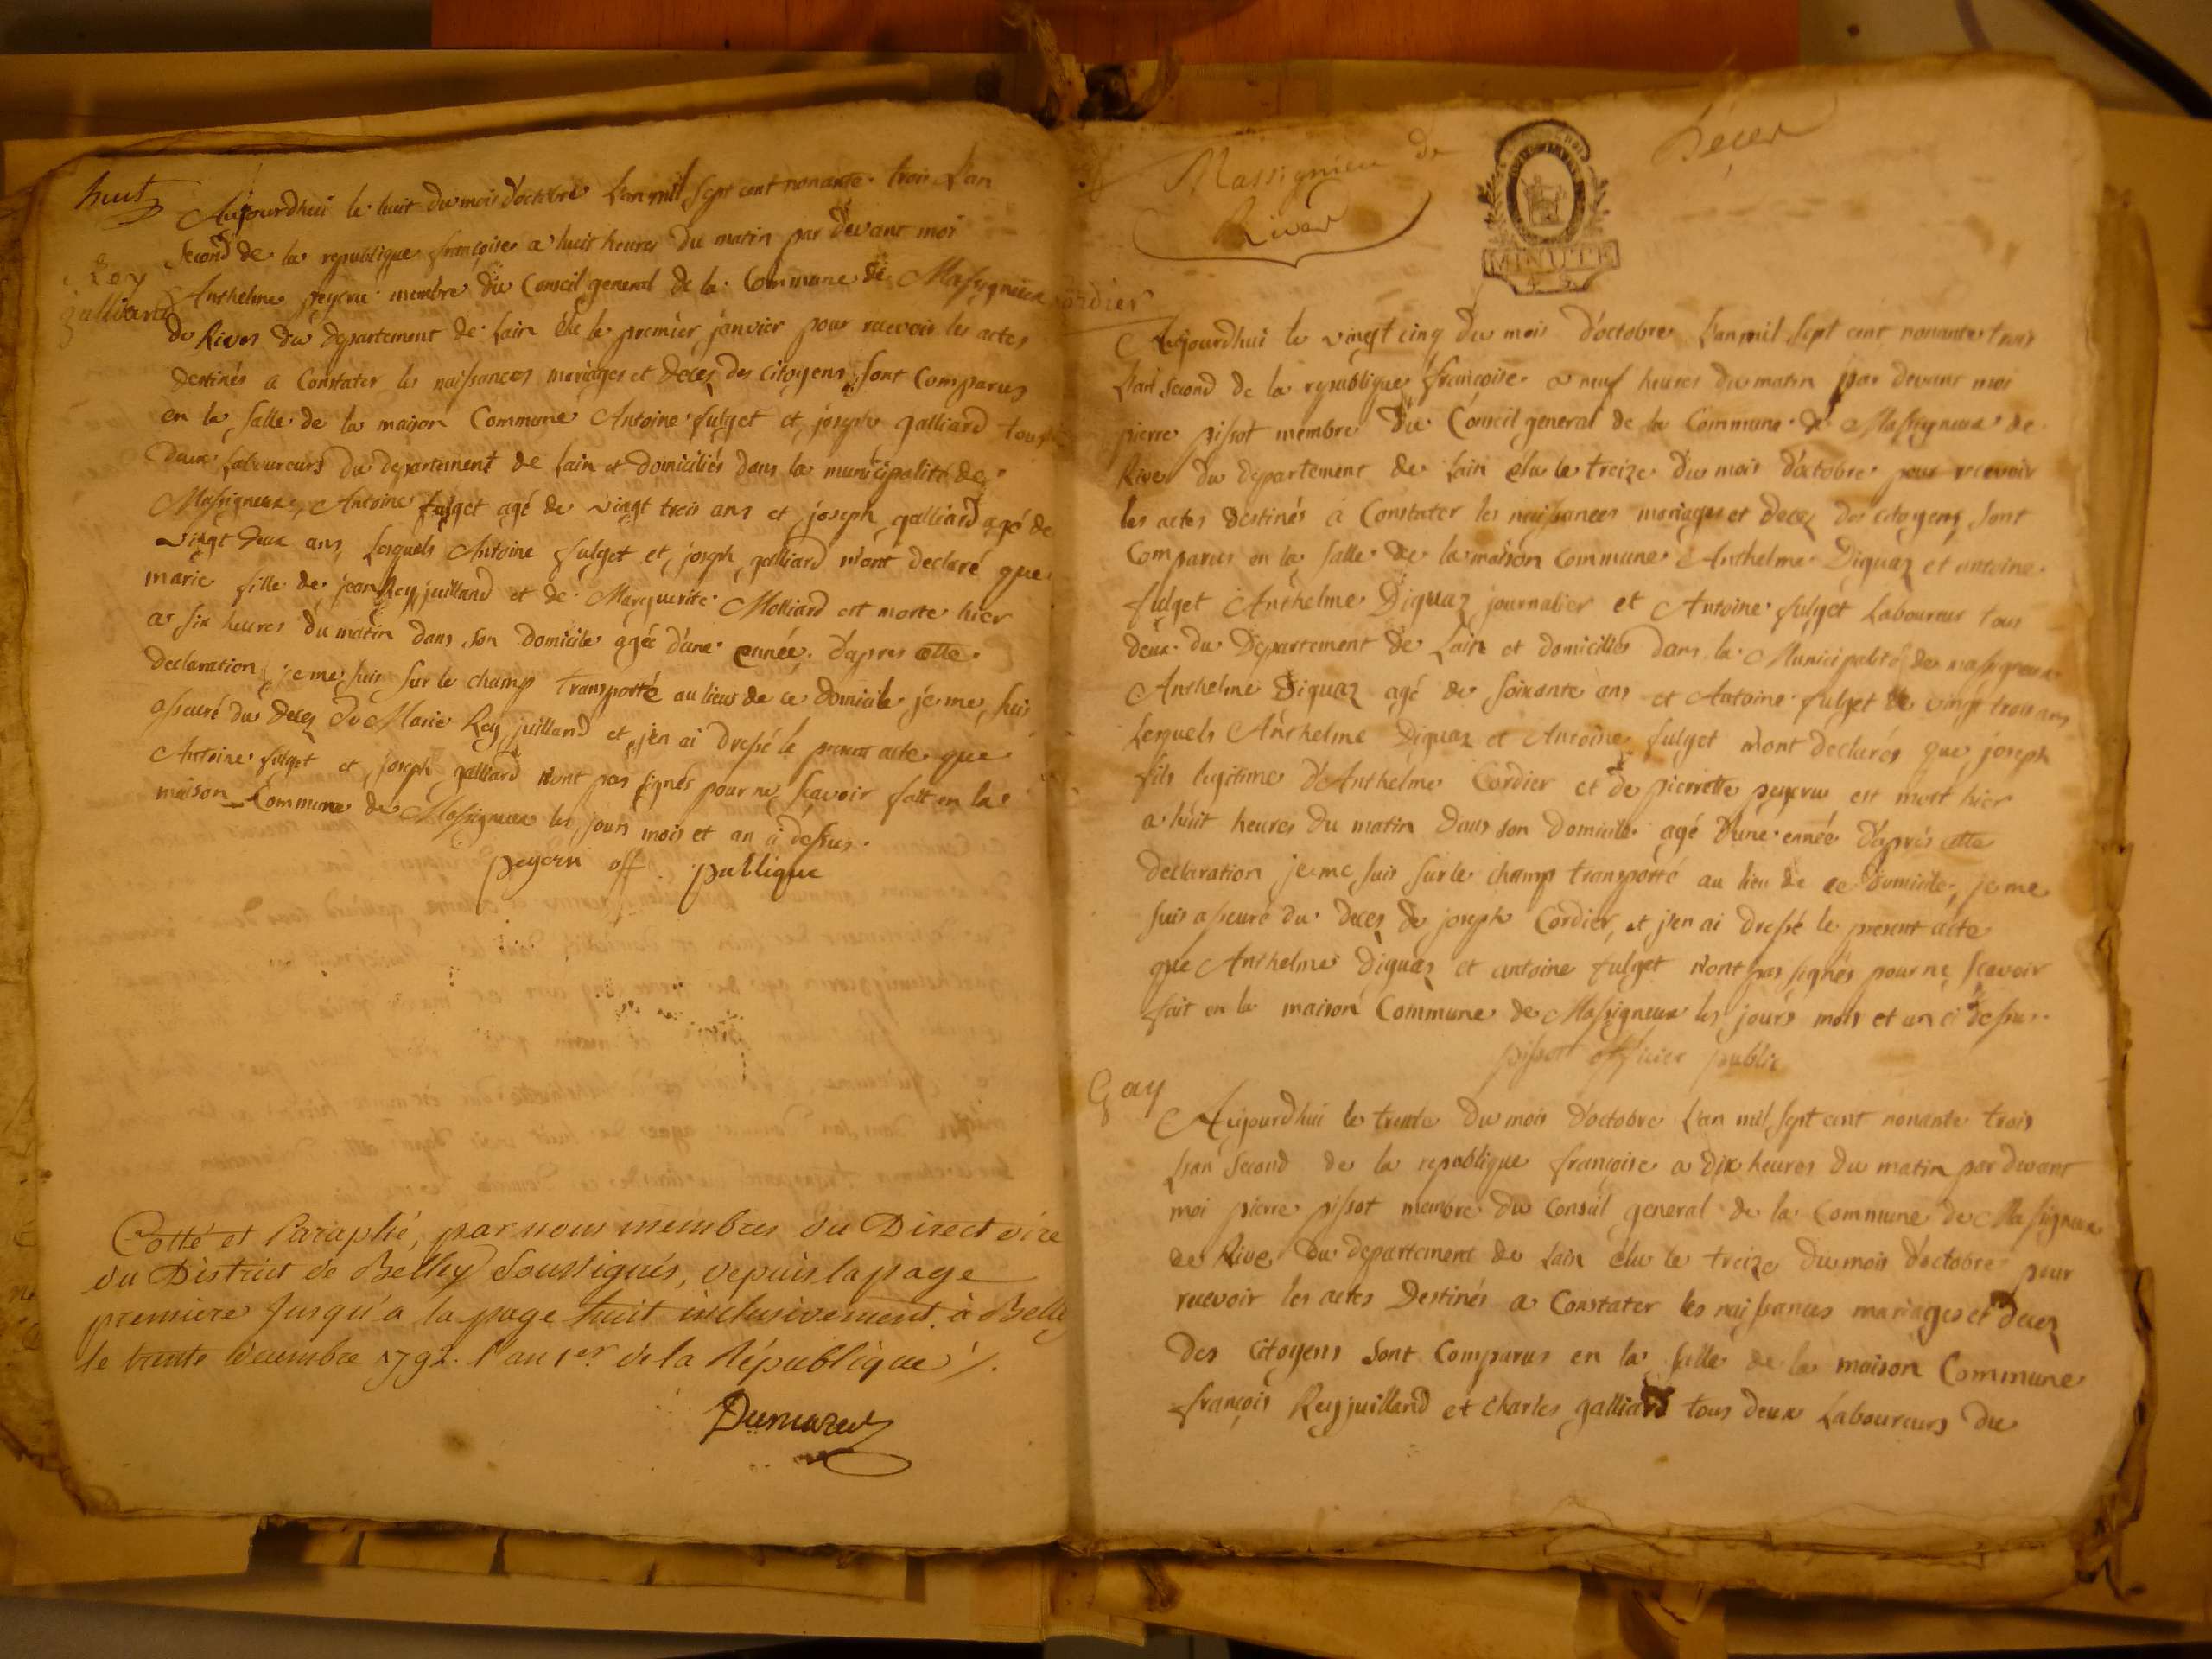 huit
Aujourdhui le huit du mois d'octobre L'an mil sept cent nonante trois L'an
second de la republique françoise a huit heures du matin par devant moi
Rey
Anthelme peyern membre du Conseil general de la Commune de Massigneux
galliard
de Rives du departement de Lain élu le premier janvier pour recevoir les actes
destinés a Constater les naissances mariages et decez des citoyens sont Comparus
en la salle de la maison Commune Antoine fulget et joseph galliard tous
deux Laboureurs du departement de Lain et domiciliés dans la municipalité de
Massigneux, Antoine fulget agé de vingt trois ans et joseph galliard agé de
vingt deux ans, Lesquels Antoine fulget et joseph galliard m'ont declaré que
marie fille de jean Rey juilland et de Marguerite Molliard est morte hier
a six heures du matin dans son domicile agée d'une année. d'apres cette
declaration je me suis sur le champ transporté au lieu de ce domicile je me suis
asseuré du decez de Marie Rey juilland et j'en ai dressé le present acte que
Antoine fulget et joseph galliard n'ont pas signés pour ne scavoir fait en la
maison Commune de Massigneux les jours mois et an ci dessus.
peyern off. publique
Cotté et Paraphé, par nous membres du Directoire
du District de Belley Soussignés, depuis la page
premiere jusqu'a la page huit inclusivement. à Belley
le trente decembre 1792. l'an 1er de la République ./.
Dumarest
Massignieu de
Rives
Décez
MINUTE
Cordier
Aujourdhui le vingt cinq du mois d'octobre L'an mil sept cent nonante trois
L'an second de la republique françoise a neuf heures du matin par devant moi
pierre pissot membre du Conseil general de la Commune de Massigneux de
Rives du departement de Lain élu le treize du mois d'octobre pour recevoir
les actes destinés à Constater les naissances mariages et decez des citoyens sont
Comparus en la salle de la maison Commune Anthelme Diguaz et antoine
fulget Anthelme Diguaz journalier et Antoine fulget Laboureur tous
deux du Departement de Lain et domiciliés dans la Municipalité de massigneux
Anthelme Diguaz agé de soixante ans et Antoine fulget de vingt trois ans
Lesquels Anthelme Diguaz et Antoine fulget m'ont declarés que joseph
fils legitime d'Anthelme Cordier et de pierrette peyern est mort hier
a huit heures du matin dans son domicile agé d'une année d'après cette
declaration je me suis sur le champ transporté au lieu de ce domicile, je me
suis asseuré du decez de joseph Cordier, et j'en ai dressé le present acte
que Anthelme Diguaz et antoine fulget n'ont pas signés pour ne scavoir
fait en la maison Commune de Massigneux les jours mois et an ci dessus.
pissot officier public
Gay
Aujourdhui le trente du mois d'octobre L'an mil sept cent nonante trois
L'an second de la republique françoise a dix heures du matin par devant
moi pierre pissot membre du Conseil general de la Commune de Massigneux
de Rives du departement de Lain élu le treize du mois d'octobre pour
recevoir les actes Destinés a Constater les naissances mariages et decez
des Citoyens sont Comparus en la salle de la maison Commune
françois Rey juilland et charles galliard tous deux Laboureurs du